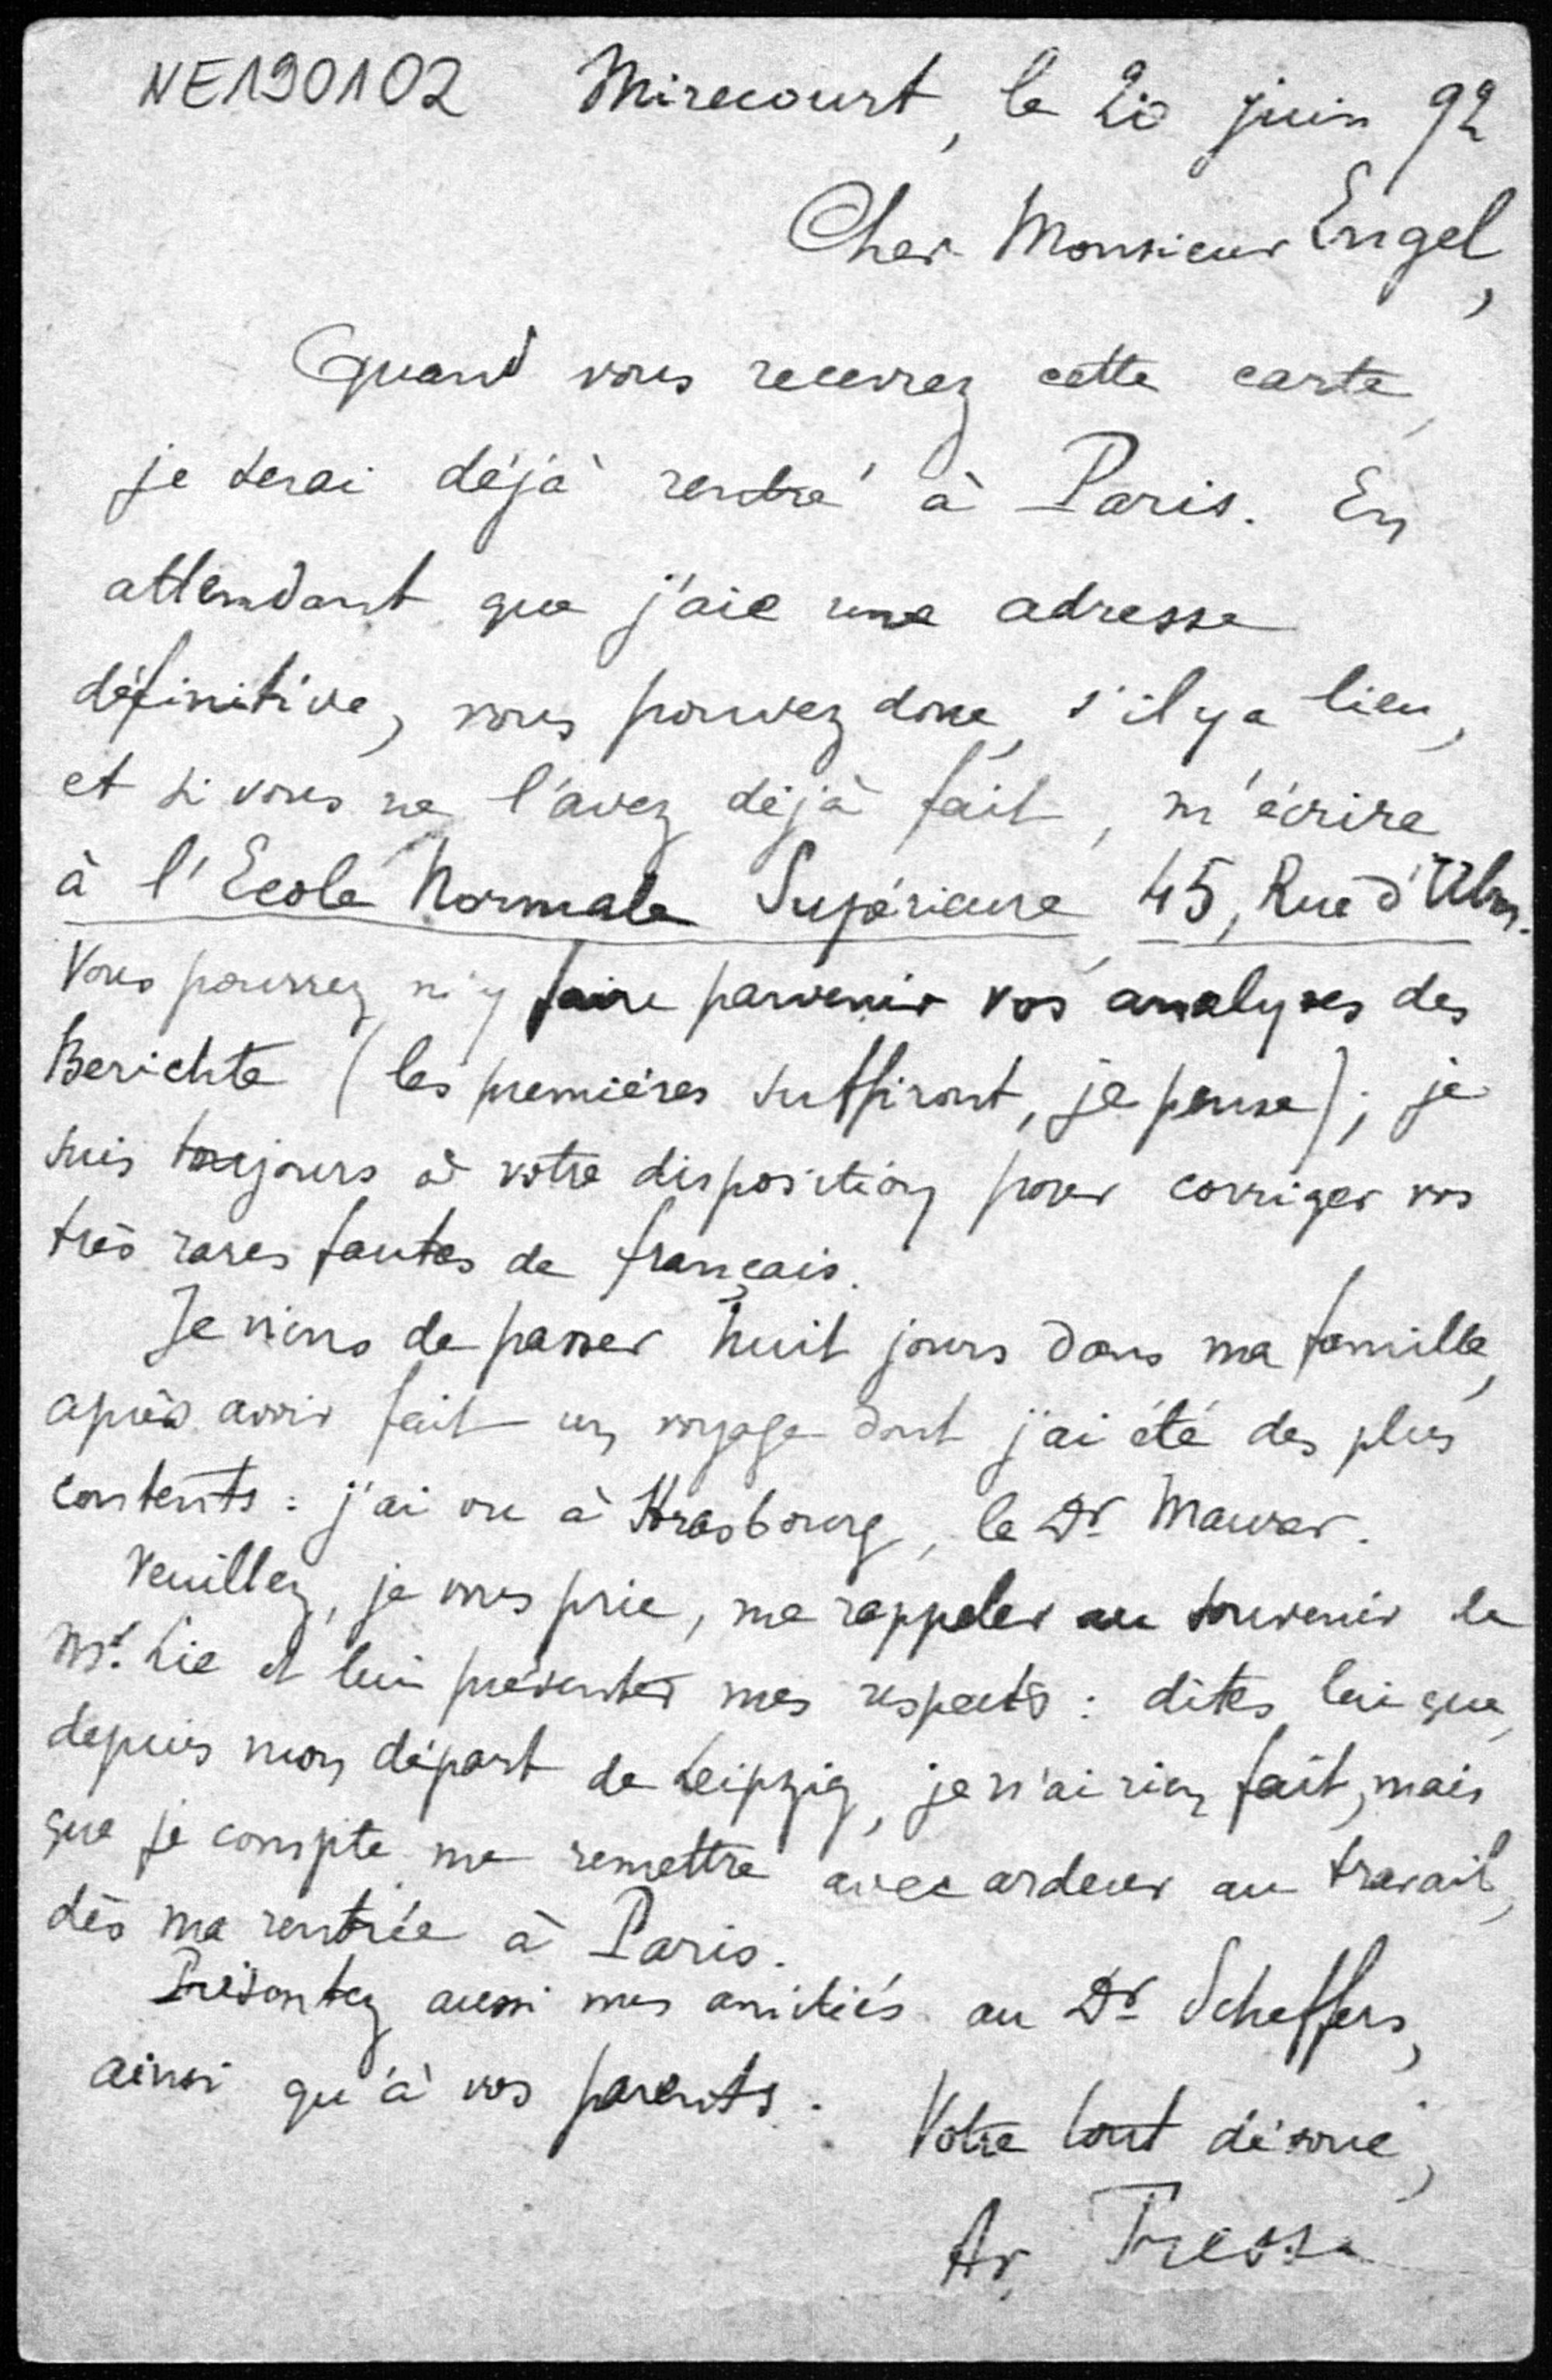 NE190102 Mirecourt, le 20 juin 92
Cher Monsieur Engel,
Quand vous recevrez cette carte,
je serai déjà rentré à Paris. En
attendant que j'aie une adresse
définitive, vous pouvez donc, s'il y a lieu,
et si vous ne l'avez déjà fait, m'écrire
à l'Ecole Normale Supérieure, 45, Rue d'Ulm.
Vous pourrez m'y faire parvenir vos analyses des
Berichte (les premières suffiront, je pense); je
suis toujours à votre disposition pour corriger vos
très rares fautes de français.
Je viens de passer huit jours dans ma famille,
après avoir fait un voyage dont j'ai été des plus
contents : j'ai vu à Strasbourg, le Dr Maurer.
Veuillez, je vous prie, me rappeler au souvenir de
Mr. Lie et lui présenter mes respects : dites lui que,
depuis mon départ de Leipzig, je n'ai rien fait, mais
que je compte me remettre avec ardeur au travail,
dès ma rentrée à Paris.
Présentez aussi mes amitiés au Dr Scheffers,
ainsi qu'à vos parents.
Votre tout dévoué,
Ar. Tresse